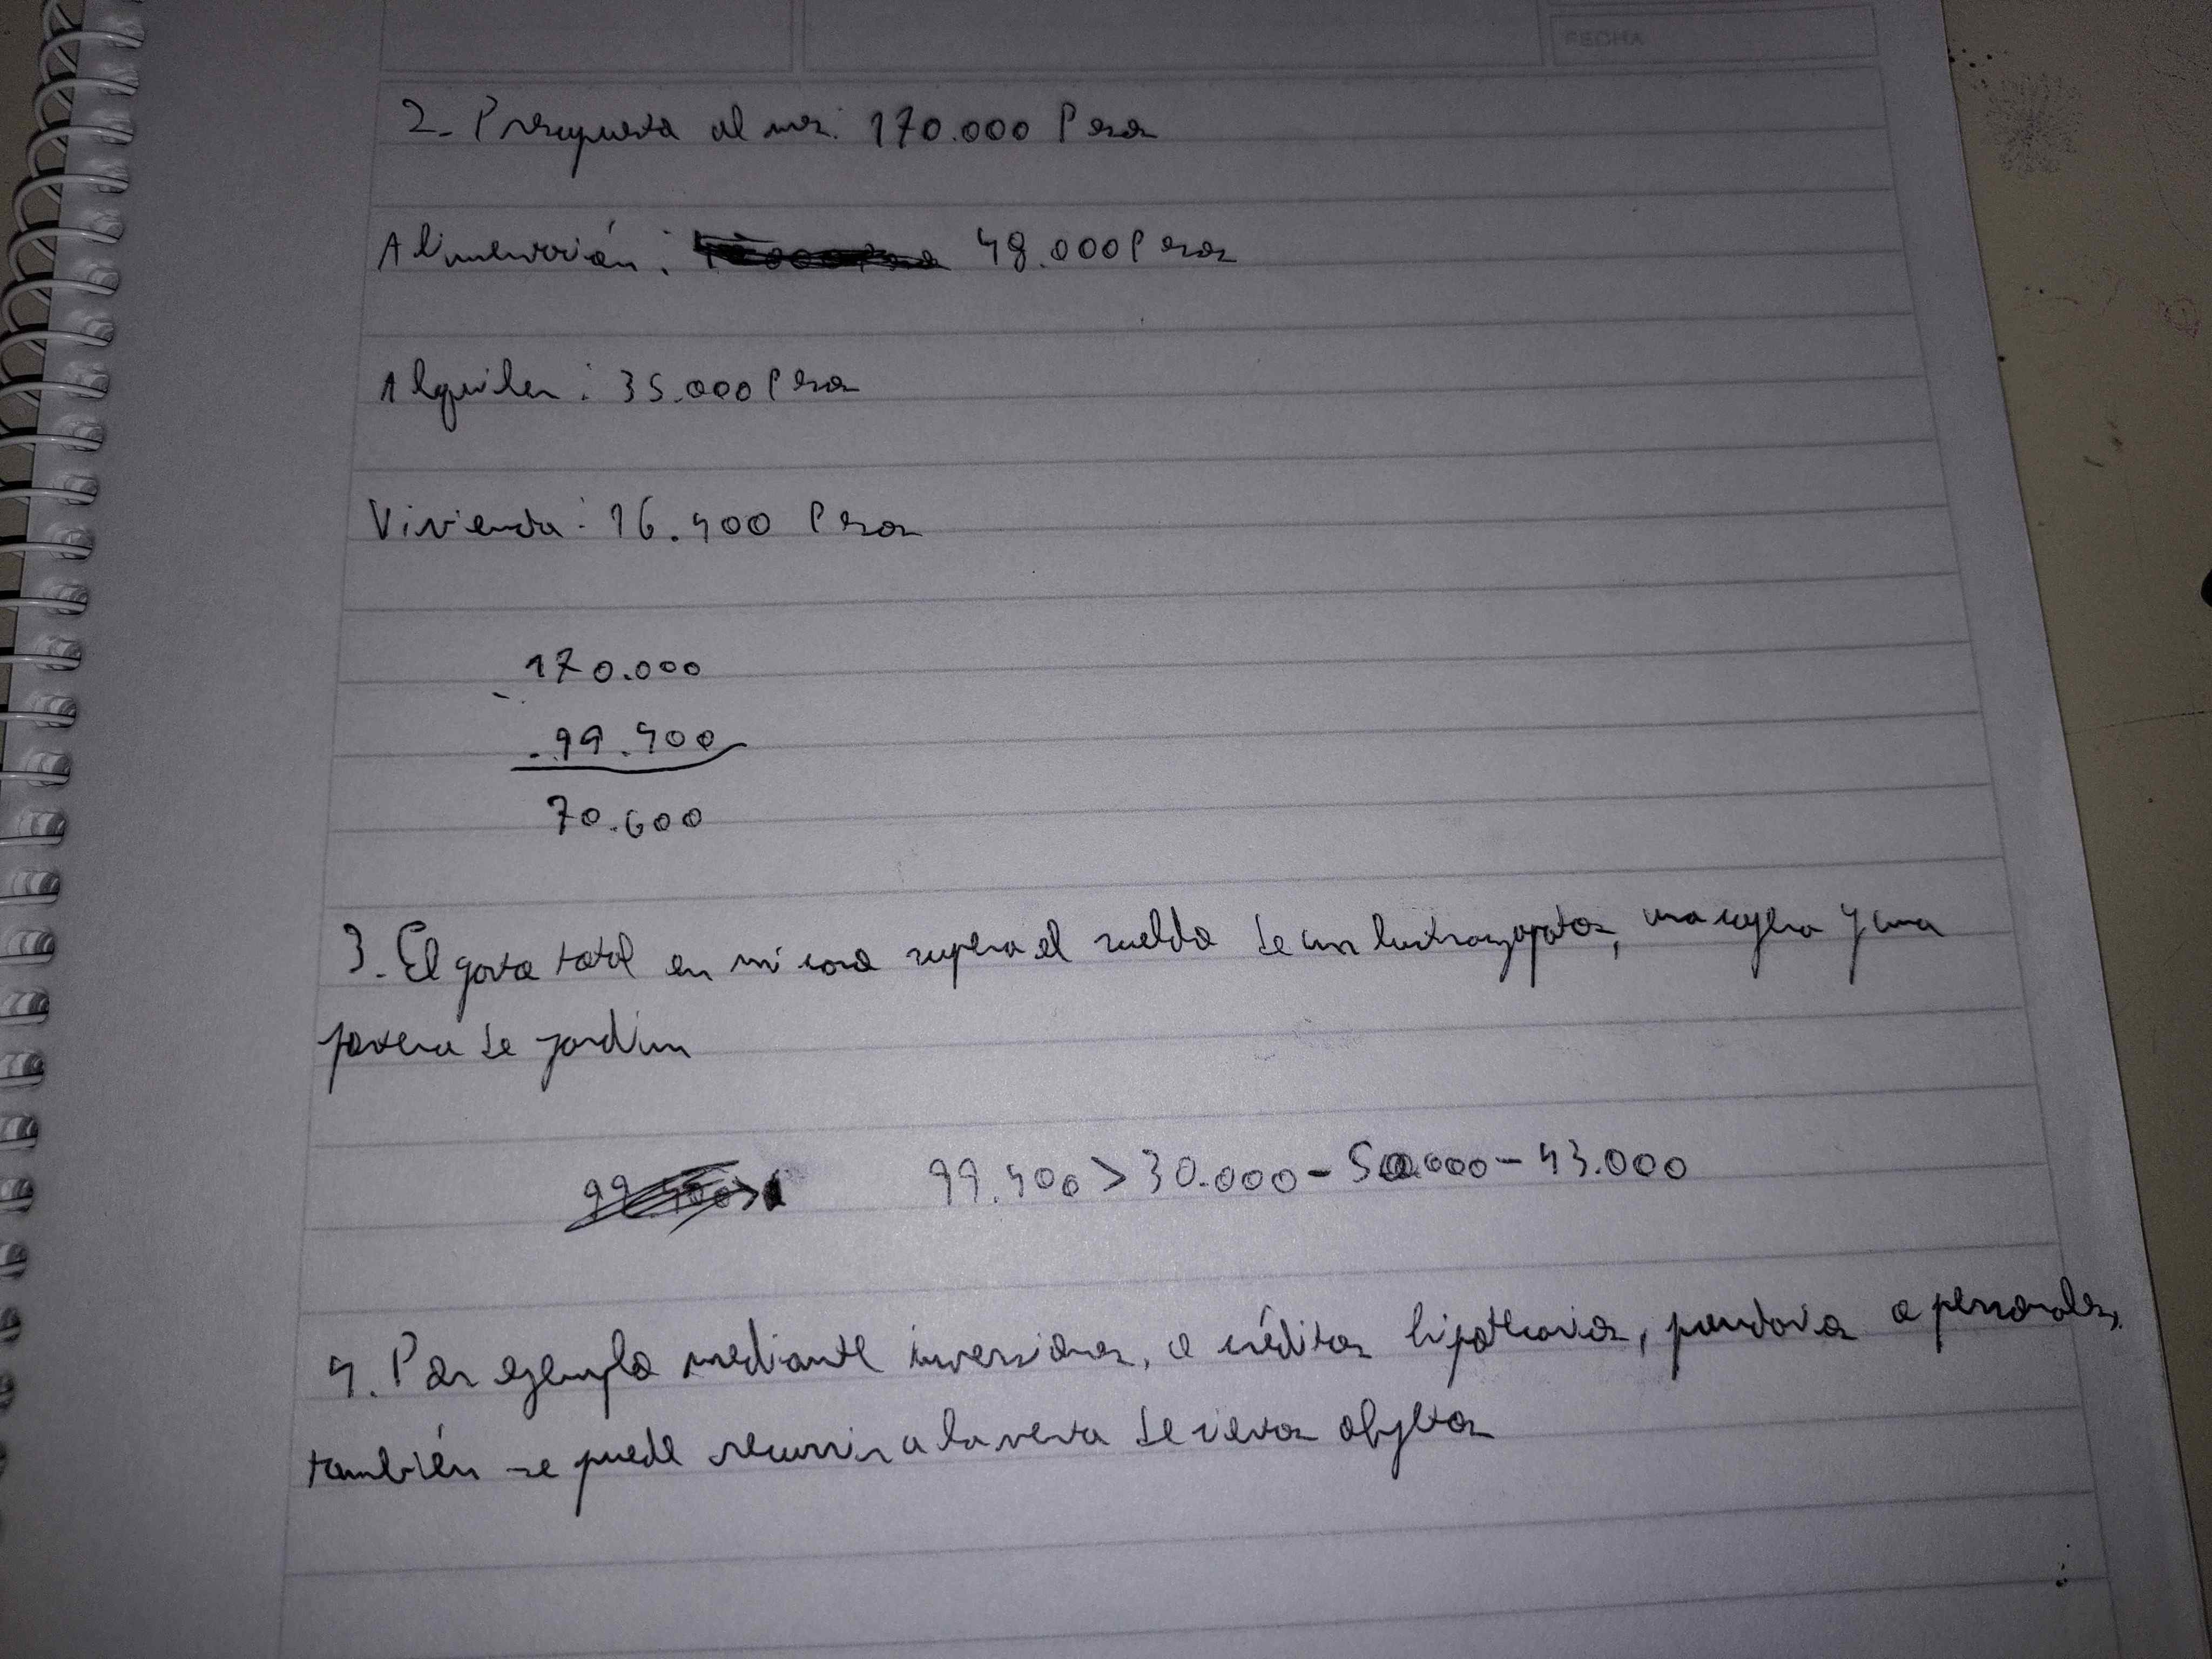 FECHA
2- Presupuesto al mes: 170.000 Pesos
Alimentación: 48.000 Pesos
Alquiler: 35.000 Pesos
Vivienda: 16.400 Pesos
170.000
- 99.400
70.600
3. El gasto total en mi casa supera el sueldo de un lustrazapatos, una y una
de jardín
99.400 > 30.000 - 50.000 - 43.000
4. Por ejemplo mediante inversiones, o créditos hipotecarios, prendarios o personales,
también se puede recurrir a la venta de ciertos objetos